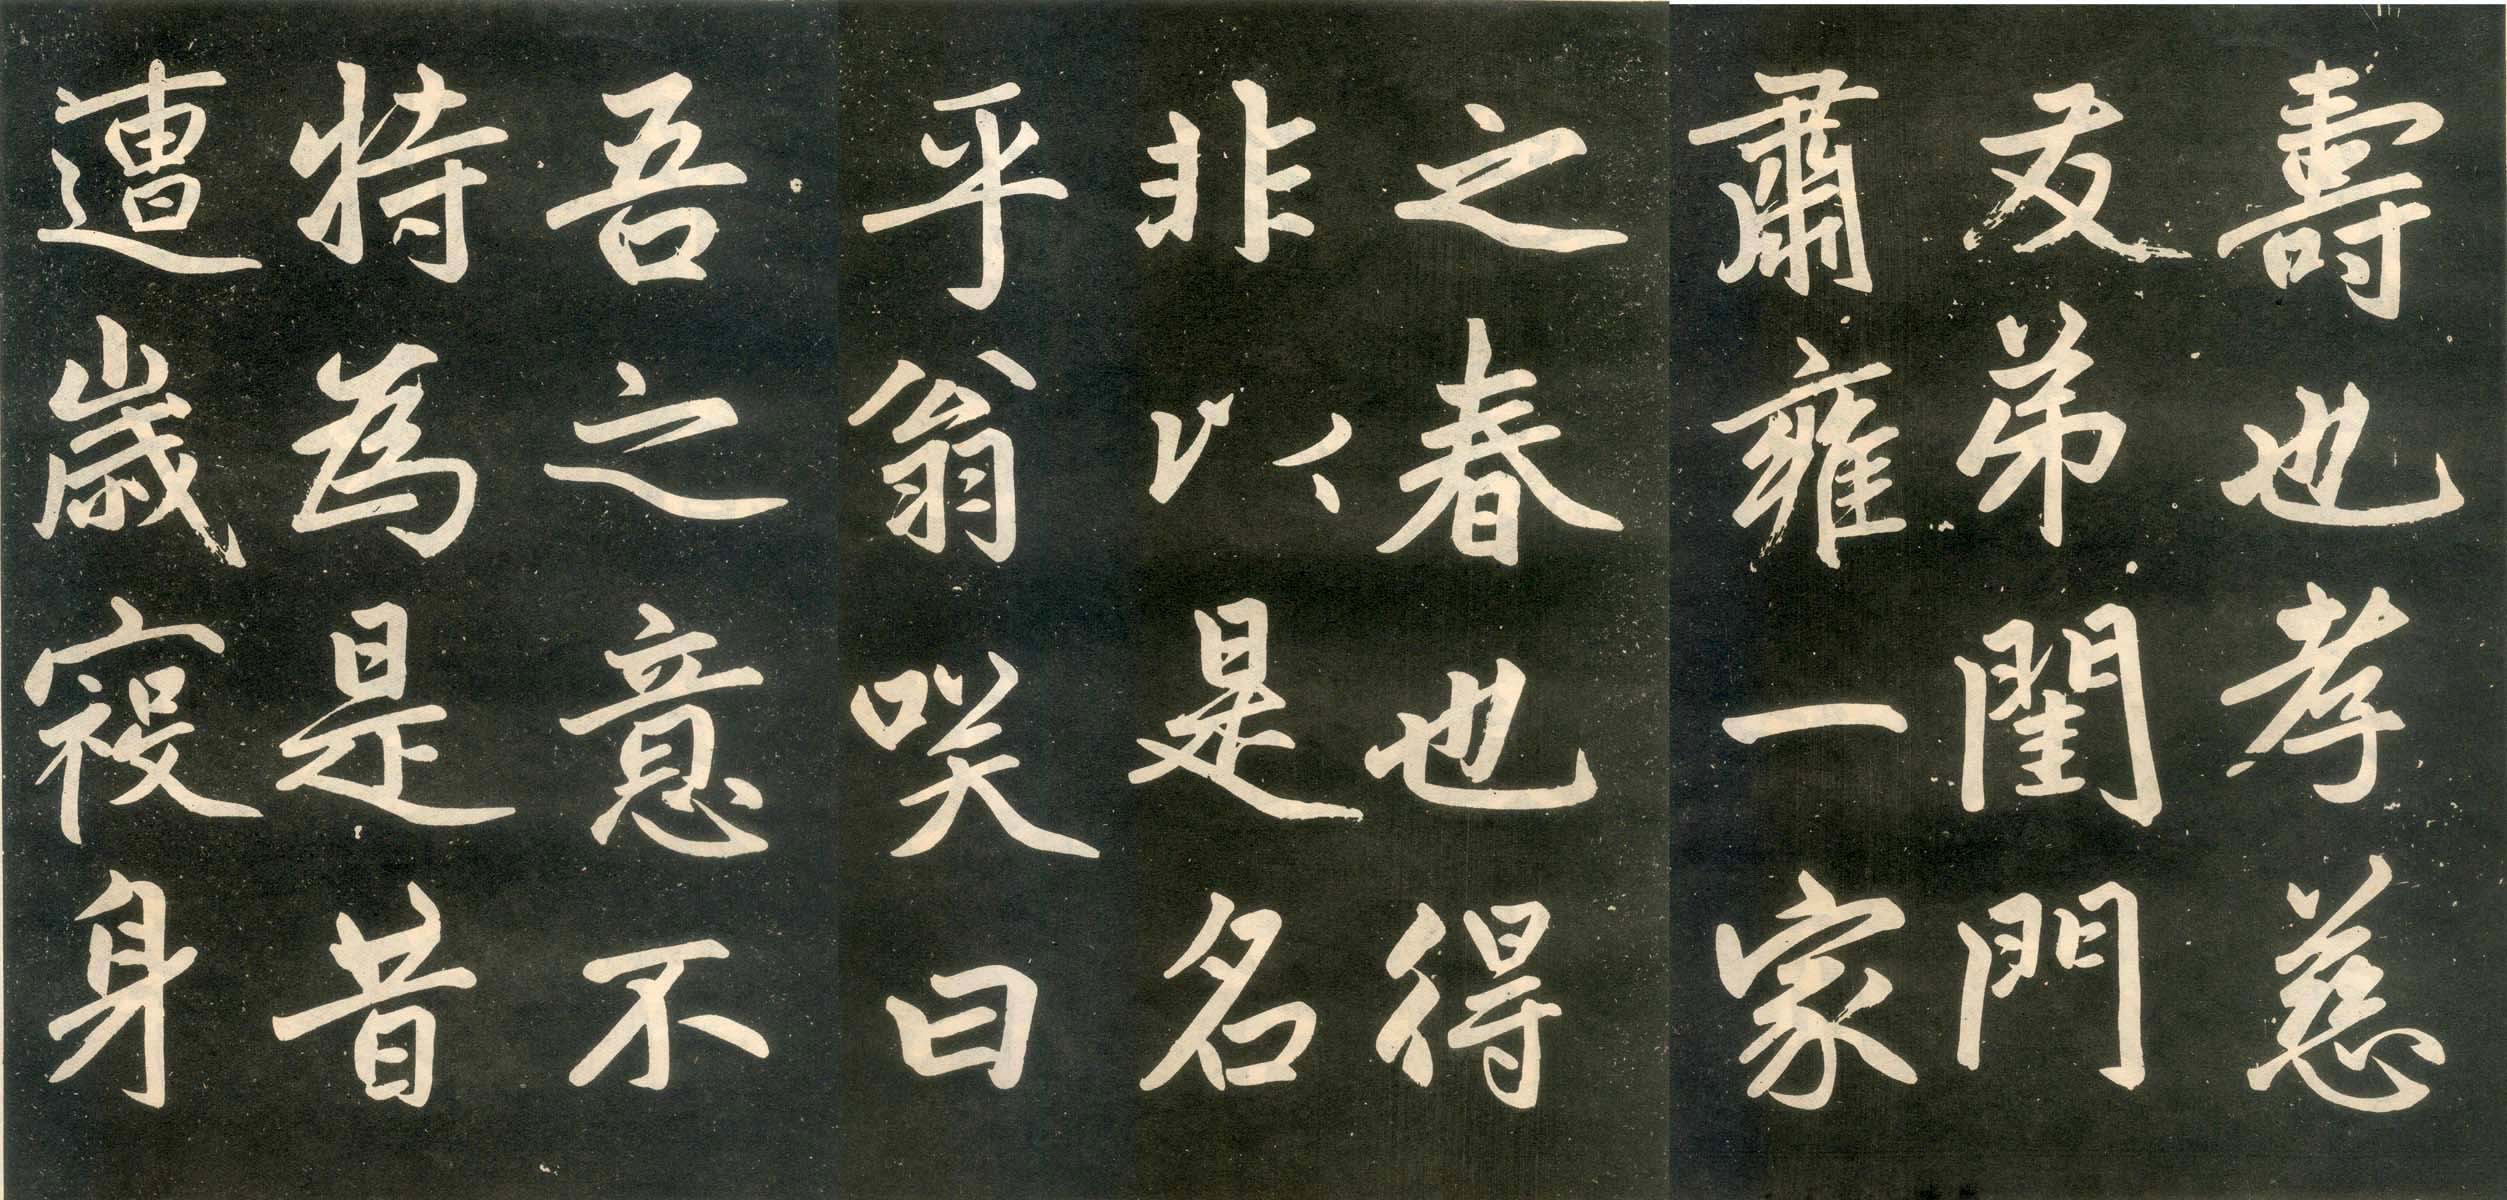 壽也孝慈
友弟閨門
肅雍一家
之春也得
非以是名
乎翁咲曰
吾之意不
特為是昔
遭歲祲身